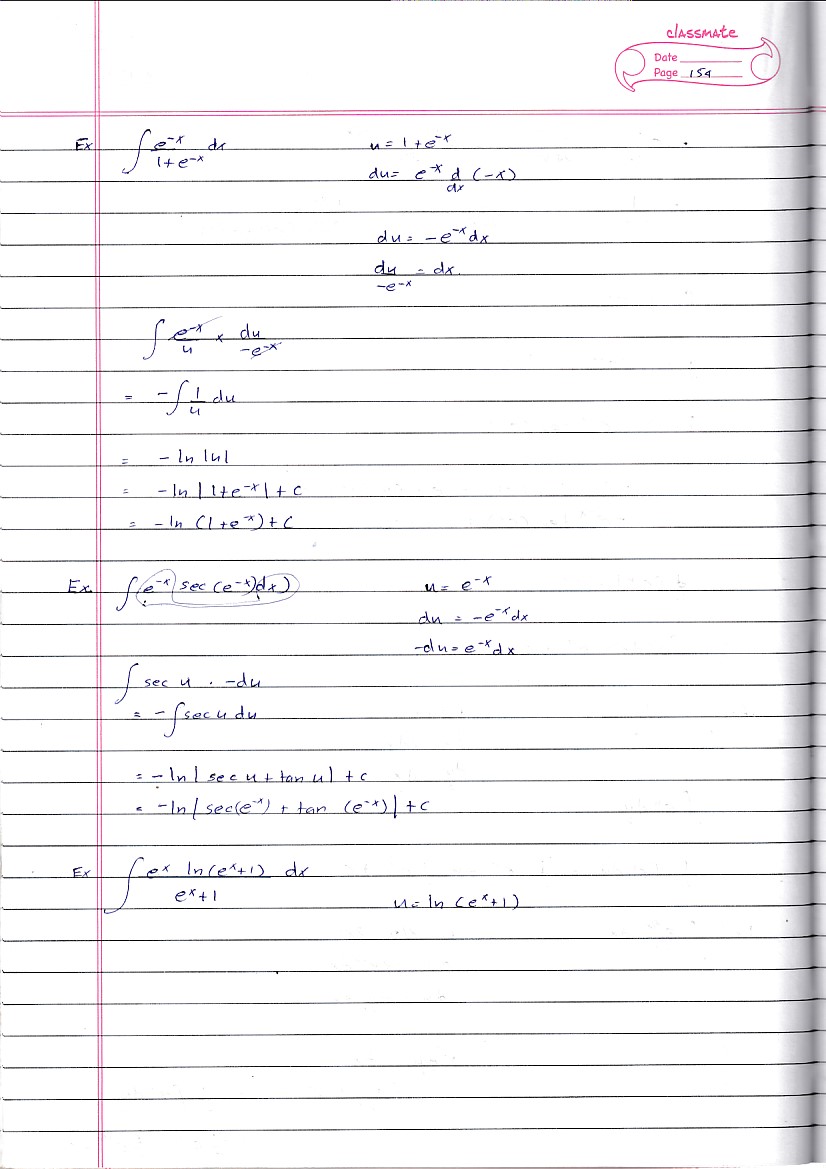 classmate
Date
Page 154
Ex ∫ e^-x / 1+e^-x dx u = 1+e^-x
du = e^-x d/dx (-x)
du = -e^-x dx
du / -e^-x = dx.
∫ e^-x / u × du / -e^-x
= -∫ 1/u du
= -ln |u|
= -ln |1+e^-x| + c
= -ln (1+e^-x) + c
Ex. ∫ (e^-x sec (e^-x) dx) u = e^-x
du = -e^-x dx
-du = e^-x dx
∫ sec u . -du
= -∫ sec u du
= -ln | sec u + tan u | + c
= -ln | sec(e^-x) + tan (e^-x) | + c
Ex ∫ e^x ln(e^x+1) / e^x+1 dx
u = ln (e^x+1)